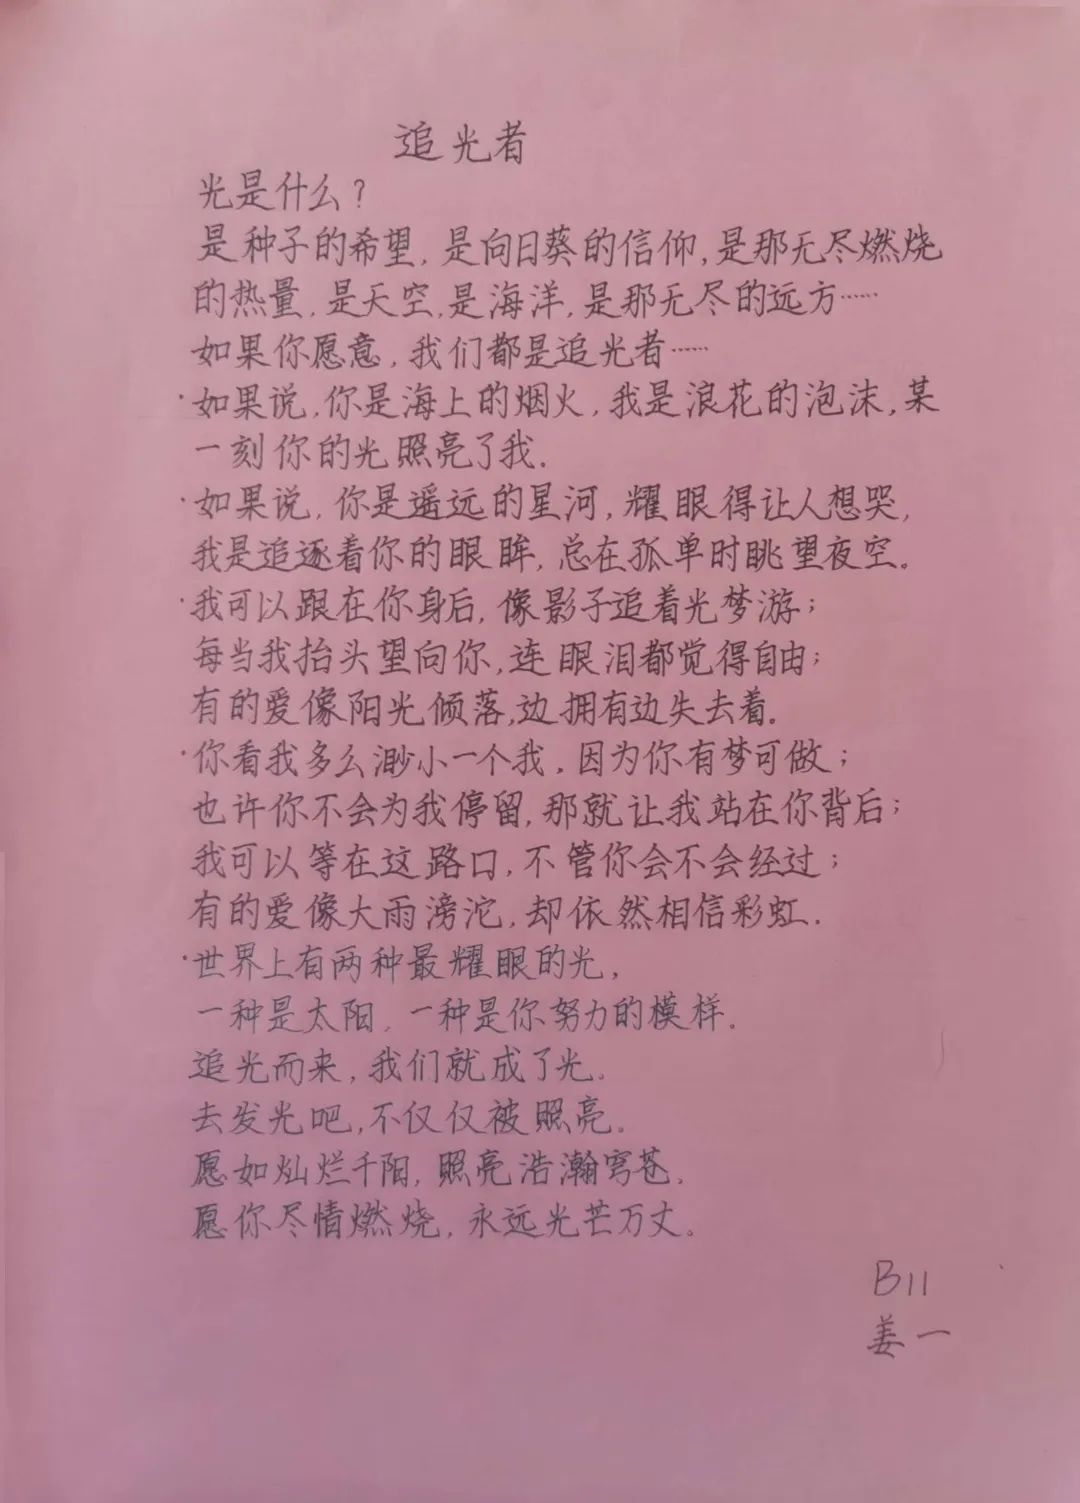 追光者
光是什么？
是种子的希望，是向日葵的信仰，是那无尽燃烧
的热量，是天空，是海洋，是那无尽的远方……
如果你愿意，我们都是追光者……
·如果说，你是海上的烟火，我是浪花的泡沫，某
一刻你的光照亮了我.
·如果说，你是遥远的星河，耀眼得让人想哭，
我是追逐着你的眼眸，总在孤单时眺望夜空。
·我可以跟在你身后，像影子追着光梦游；
每当我抬头望向你，连眼泪都觉得自由；
有的爱像阳光倾落，边拥有边失去着.
·你看我多么渺小一个我，因为你有梦可做；
也许你不会为我停留，那就让我站在你背后；
我可以等在这路口，不管你会不会经过；
有的爱像大雨滂沱，却依然相信彩虹.
·世界上有两种最耀眼的光，
一种是太阳，一种是你努力的模样。
追光而来，我们就成了光。
去发光吧，不仅仅被照亮。
愿如灿烂千阳，照亮浩瀚穹苍，
愿你尽情燃烧，永远光芒万丈。
B11
姜一